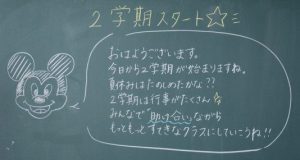 2学期スタート☆ミ
おはようございます。
今日から2学期が始まりますね。
夏休みはたのしめたかな??
2学期は行事がたくさん☆
みんなで「助け合い」ながら
もっともっとすてきなクラスにしていこうね!!